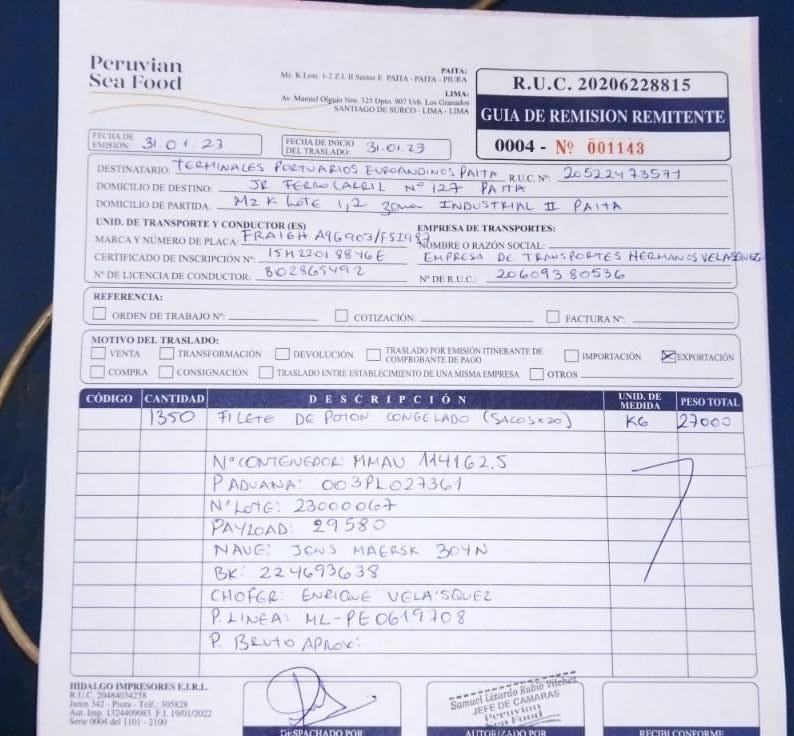 Peruvian
Sea Food
PAITA:
Mz. K Lote. 1-2 Z.I. II Sector E PAITA - PAITA - PIURA
LIMA:
Av. Manuel Olguin Nro. 325 Dpto. 907 Urb. Los Granados
SANTIAGO DE SURCO - LIMA - LIMA
R.U.C. 20206228815
GUIA DE REMISION REMITENTE
0004 - Nº 001143
FECHA DE EMISIÓN: 31.01.23
FECHA DE INICIO DEL TRASLADO: 31.01.23
DESTINATARIO: TERMINALES PORTUARIOS EUROANDINOS PAITA R.U.C. Nº: 20522473571
DOMICILIO DE DESTINO: JR FERROCARRIL Nº 127 PAITA
DOMICILIO DE PARTIDA: Mz K LOTE 1,2 zona INDUSTRIAL II PAITA
UNID. DE TRANSPORTE Y CONDUCTOR (ES) EMPRESA DE TRANSPORTES:
MARCA Y NÚMERO DE PLACA: A9G903/FSI987 NOMBRE O RAZÓN SOCIAL:
CERTIFICADO DE INSCRIPCIÓN Nº: 15M22018846E EMPRESA DE TRANSPORTES HERMANOS VELASQUEZ
Nº DE LICENCIA DE CONDUCTOR: B02865492 Nº DE R.U.C.: 20609380536
REFERENCIA:
ORDEN DE TRABAJO Nº: COTIZACIÓN: FACTURA Nº:
MOTIVO DEL TRASLADO:
VENTA TRANSFORMACIÓN DEVOLUCIÓN TRASLADO POR EMISIÓN ITINERANTE DE COMPROBANTE DE PAGO IMPORTACIÓN EXPORTACIÓN
COMPRA CONSIGNACIÓN TRASLADO ENTRE ESTABLECIMIENTO DE UNA MISMA EMPRESA OTROS
CÓDIGO CANTIDAD DESCRIPCIÓN UNID. DE MEDIDA PESO TOTAL
1350 FILETE DE POTON CONGELADO (SACOS x 20) KG 27000
Nº CONTENEDOR: MMAU 114162.5
P ADUANA: 003PL027361
Nº LOTE: 23000067
PAYLOAD: 29580
NAVE: JENS MAERSK 304N
BK: 224693638
CHOFER: ENRIQUE VELASQUEZ
P. LINEA: ML-PE0619708
P. BRUTO APROX:
HIDALGO IMPRESORES E.I.R.L.
R.U.C. 20484034258
Junín 342 - Piura - Telf.: 305828
Aut. Imp. 1324409083 F.I. 19/01/2022
Serie 0004 del 1101 - 2100
Samuel Lizardo Rubio Vilchez
JEFE DE CAMARAS
Peruvian
Sea Food
DESPACHADO POR AUTORIZADO POR RECIBI CONFORME